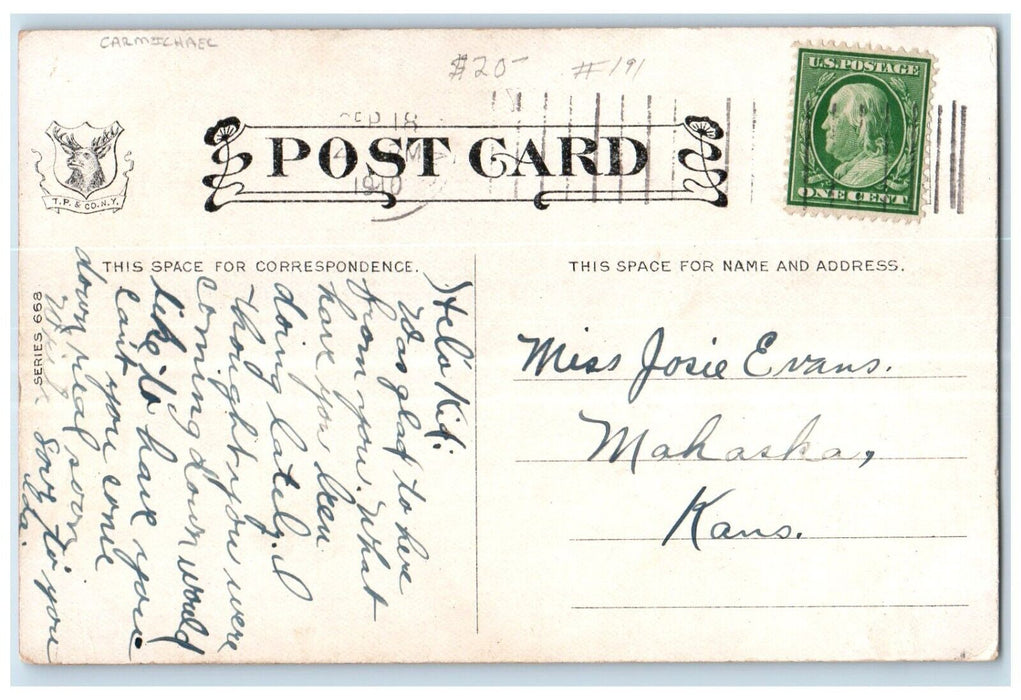 CARMICHAEL
$20- #191
SEP 18
1910
POST CARD
U.S. POSTAGE
ONE CENT
T.P. & CO. N.Y.
THIS SPACE FOR CORRESPONDENCE.
THIS SPACE FOR NAME AND ADDRESS.
SERIES 668
Hela Kid:
Was glad to here
from you. What
have you been
doing lately. I
thought you were
coming down would
like to have you
can't you come
down real soon
say to you
Miss Josie Evans.
Mahaska,
Kans.